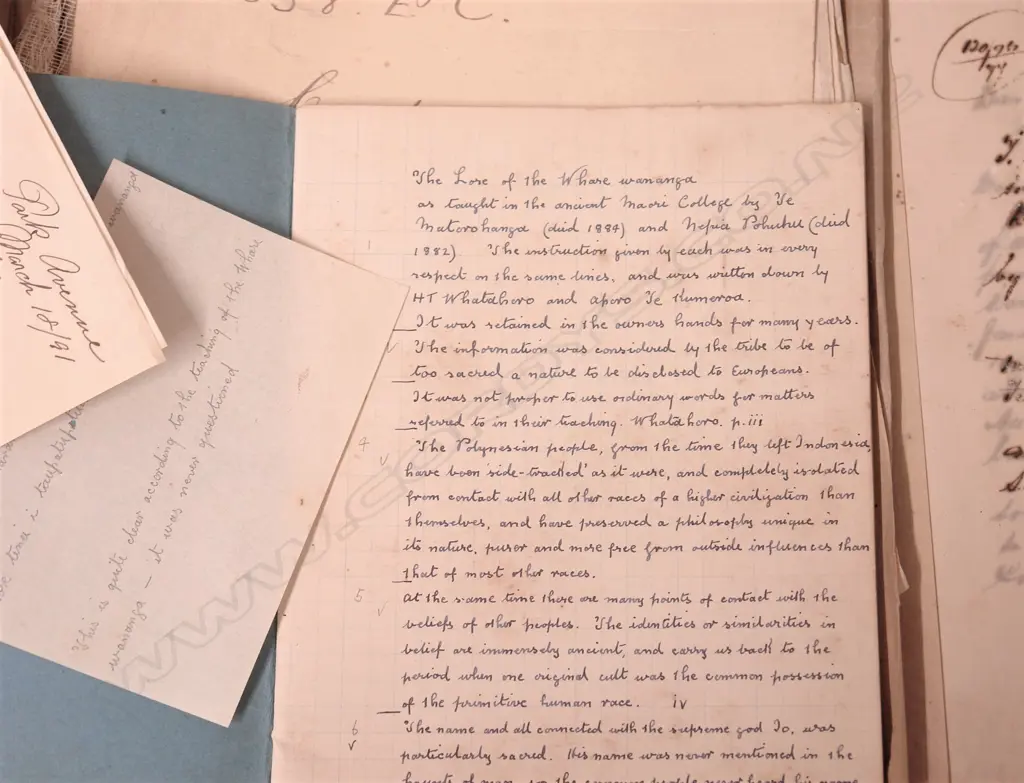 Park Avenue
March 18/91
wananga
This is quite clear according to the teaching of the Whare
wananga — it was never questioned
The Lore of the Whare wananga
as taught in the ancient Maori College by Te
Matorohanga (died 1884) and Nepia Pohuhu (died
1882). The instruction given by each was in every
respect on the same lines, and was written down by
HT Whatahoro and Aporo Te Kumeroa.
It was retained in the owners hands for many years.
The information was considered by the tribe to be of
too sacred a nature to be disclosed to Europeans.
It was not proper to use ordinary words for matters
referred to in their teaching. Whatahoro. p.iii
The Polynesian people, from the time they left Indonesia,
have been 'side-tracked' as it were, and completely isolated
from contact with all other races of a higher civilization than
themselves, and have preserved a philosophy unique in
its nature, purer and more free from outside influences than
that of most other races.
At the same time there are many points of contact with the
beliefs of other peoples. The identities or similarities in
belief are immensely ancient, and carry us back to the
period when one original cult was the common possession
of the primitive human race. iv
The name and all connected with the supreme god Io, was
particularly sacred. His name was never mentioned in the
1
4
5
6
by